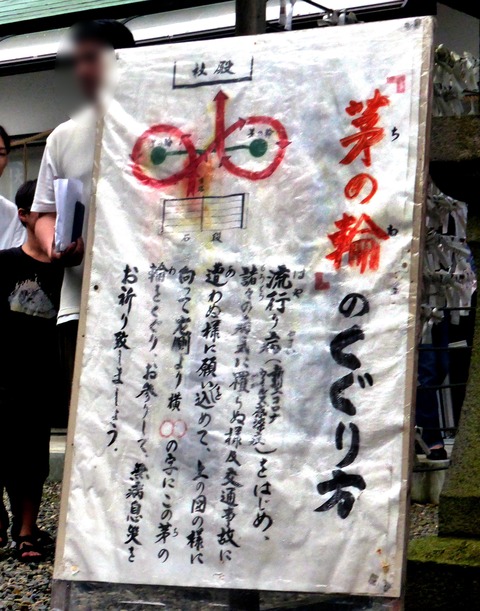 『茅の輪』のくぐり方
ち
わ
社殿
茅の輪
石段
はや
流行り病(新型コロナ
をはじめ、
諸々の病気に罹らぬ様及交通事故に
遭わぬ様に願い込めて、上の図の様に
向って左側より横〇〇の字にこの茅の
輪をくぐり、お参りして、無病息災を
お祈り致しましょう。